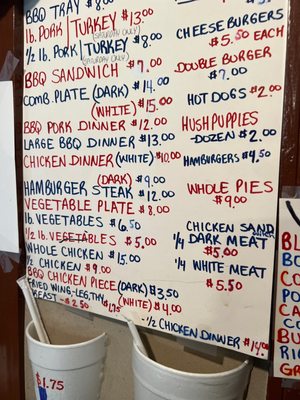 BBQ TRAY $8.00
lb. PORK|TURKEY $13.00
SATURDAY ONLY
1/2 lb. PORK|TURKEY $8.00
SATURDAY ONLY
BBQ SANDWICH $7.00
COMB. PLATE (DARK) $14.00
(WHITE) $15.00
BBQ PORK DINNER $12.00
LARGE BBQ DINNER $13.00
CHICKEN DINNER (WHITE) $10.00
(DARK) $9.00
HAMBURGER STEAK $12.00
VEGETABLE PLATE $8.00
lb. VEGETABLES $6.50
1/2 lb. VEGETABLES $5.00
WHOLE CHICKEN $15.00
1/2 CHICKEN $9.00
BBQ CHICKEN PIECE (DARK) $3.50
(WHITE) $4.00
FRIED WING-LEG, THY $1.75
BREAST - $2.50
1/2 CHICKEN DINNER $14.00
CHEESEBURGERS
$5.50 EACH
DOUBLE BURGER
$7.00
HOT DOGS $2.00
HUSHPUPPIES
DOZEN $2.00
HAMBURGERS $4.50
WHOLE PIES
$9.00
CHICKEN SANDWICH
1/4 DARK MEAT
$5.00
1/4 WHITE MEAT
$5.50
$1.75